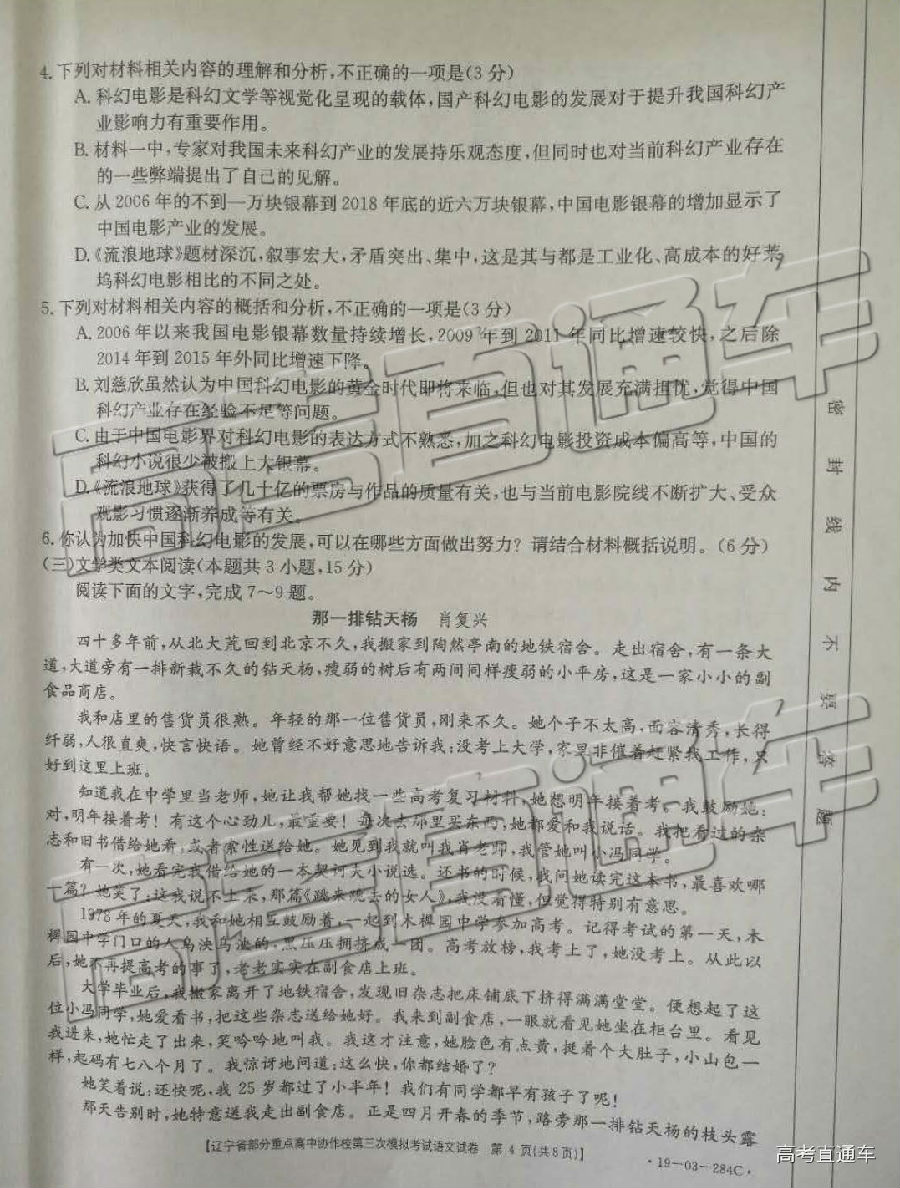 4.下列对材料相关内容的理解和分析,不正确的一项是(3分)
A.科幻电影是科幻文学等视觉化呈现的载体,国产科幻电影的发展对于提升我国科幻产
业影响力有重要作用。
B.材料一中,专家对我国未来科幻产业的发展持乐观态度,但同时也对当前科幻产业存在
的一些弊端提出了自己的见解。
C.从2006年的不到一万块银幕到2018年底的近六万块银幕,中国电影银幕的增加显示了
中国电影产业的发展。
D.《流浪地球》题材深沉,叙事宏大,矛盾突出、集中,这是其与都是工业化、高成本的好莱
坞科幻电影相比的不同之处。
5.下列对材料相关内容的概括和分析,不正确的一项是(3分)
A.2006年以来我国电影银幕数量持续增长,2009年到2011年同比增速较快,之后除
2014年到2015年外同比增速下降。
B.刘慈欣虽然认为中国科幻电影的黄金时代即将来临,但也对其发展充满担忧,觉得中国
科幻产业存在经验不足等问题。
C.由于中国电影界对科幻电影的表达方式不熟悉,加之科幻电影投资成本偏高等,中国的
科幻小说很少被搬上大银幕。
D.《流浪地球》获得了几十亿的票房与作品的质量有关,也与当前电影院线不断扩大、受众
观影习惯逐渐养成等有关。
6.你认为加快中国科幻电影的发展,可以在哪些方面做出努力?请结合材料概括说明。(6分)
(三)文学类文本阅读(本题共3小题,15分)
阅读下面的文字,完成7～9题。
那一排钻天杨 肖复兴
四十多年前,从北大荒回到北京不久,我搬家到陶然亭南的地铁宿舍。走出宿舍,有一条大
道,大道旁有一排新栽不久的钻天杨,瘦弱的树后有两间同样瘦弱的小平房,这是一家小小的副
食品商店。
我和店里的售货员很熟。年轻的那一位售货员,刚来不久。她个子不太高,面容清秀,长得
纤弱,人很直爽,快言快语。她曾经不好意思地告诉我:没考上大学,家里非催着赶紧找工作,只
好到这里上班。
知道我在中学里当老师,她让我帮她找一些高考复习材料,她想明年接着考。我鼓励她:
对,明年接着考!有这个心劲儿,最重要!每次去那里买东西,她都爱和我说话。我把看过的杂
志和旧书借给她看,或者索性送给她。她见到我就叫我肖老师,我管她叫小冯同学。
有一次,她看完我借给她的一本契诃夫小说选。还书的时候,我问她读完这本书,最喜欢哪
一篇?她笑了:这我说不上来,那篇《跳来跳去的女人》,我没看懂,但觉得特别有意思。
1978年的夏天,我和她相互鼓励着,一起到木樨园中学参加高考。记得考试的第一天,木
樨园中学门口的人乌泱乌泱的,黑压压拥挤成一团。高考放榜,我考上了,她没考上。从此以
后,她不再提高考的事了,老老实实在副食店上班。
大学毕业后,我搬家离开了地铁宿舍,发现旧杂志把床铺底下挤得满满堂堂。便想起了这
位小冯同学,她爱看书,把这些杂志送给她好。我来到副食店,一眼就看见她坐在柜台里。看见
我进来,她忙走了出来,笑吟吟地叫我。我这才注意,她脸色有点黄,挺着个大肚子,小山包一
样,起码有七八个月了。我惊讶地问道:这么快,你都结婚了?
她笑着说:还快呢,我25岁都过了小半年!我们有同学都早有孩子了呢!
那天告别时,她特意送我走出副食店。正是四月开春的季节,路旁那一排钻天杨的枝头露
【辽宁省部分重点高中协作校第三次模拟考试语文试卷 第4页(共8页)】
·19-03-284C·
密封线内不要答题
高考直通车
高考直通车
高考直通车